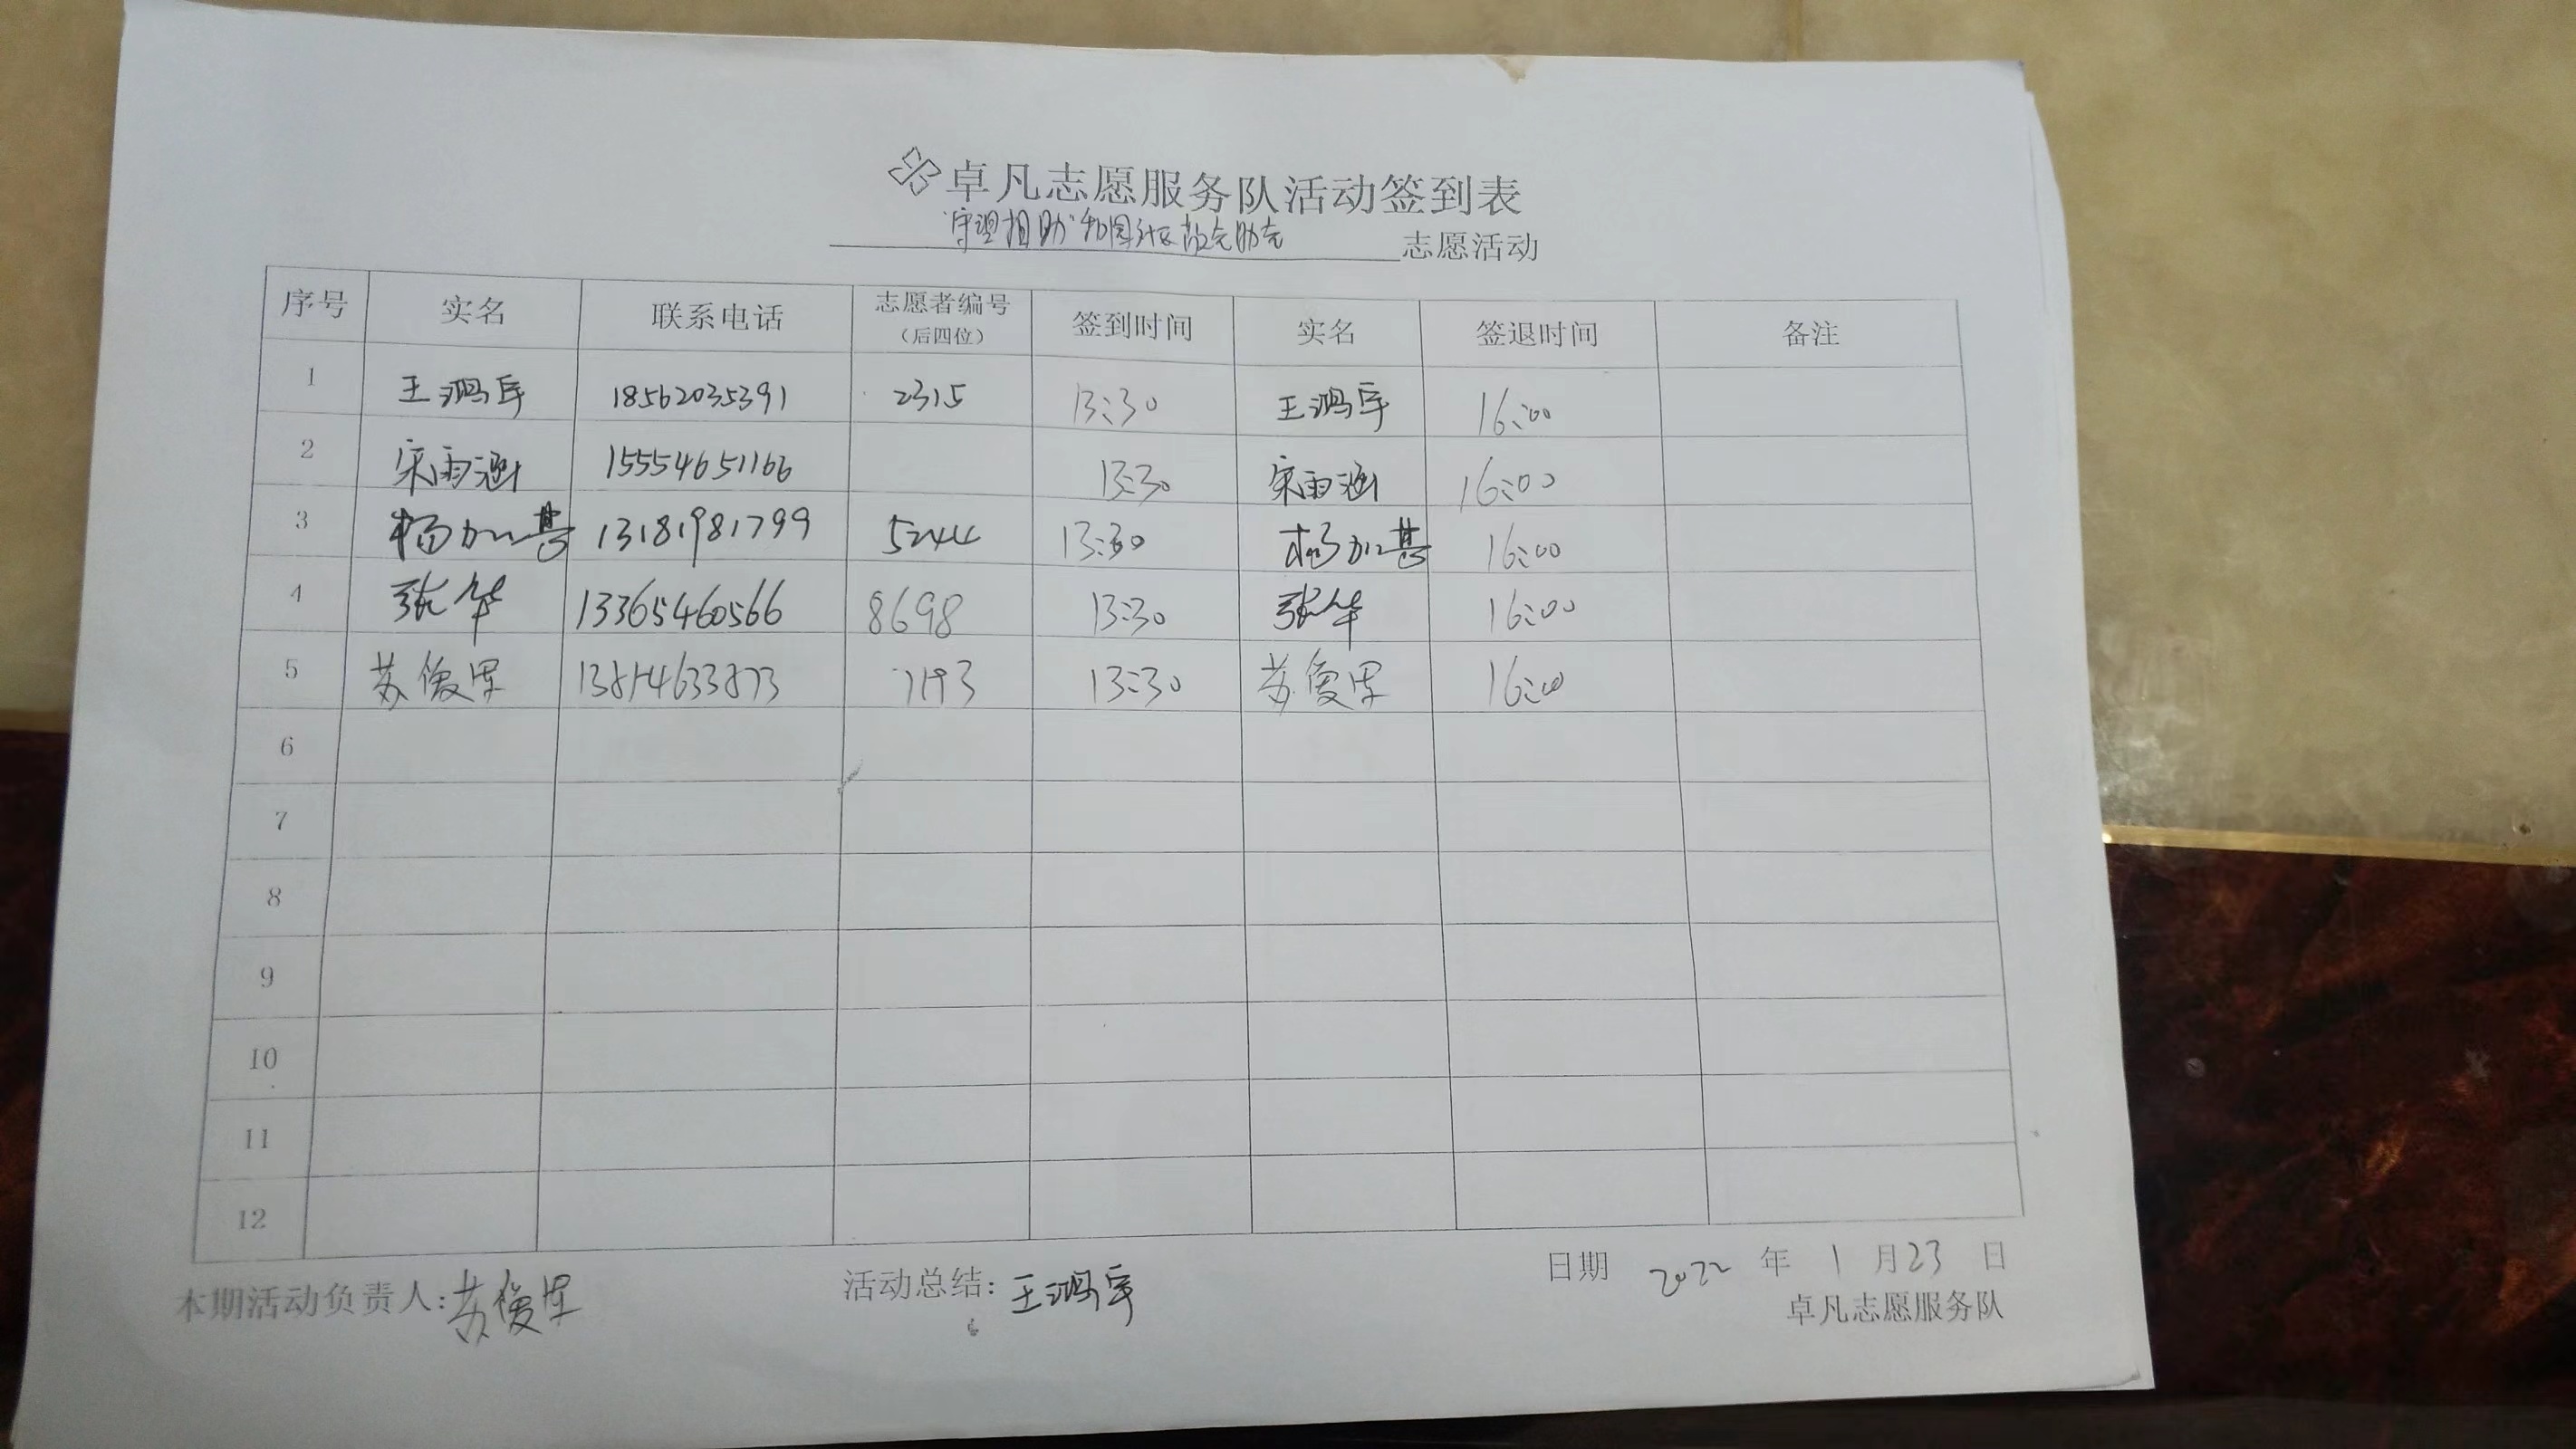 卓凡志愿服务队活动签到表
"守望相助"和园社区敲元助老 志愿活动
序号 实名 联系电话 志愿者编号（后四位） 签到时间 实名 签退时间 备注
1 王鸿宇 18562035391 2315 13:30 王鸿宇 16:00
2 宋雨涵 15554651166 13:30 宋雨涵 16:00
3 杨加甚 13181981799 5244 13:30 杨加甚 16:00
4 张华 13365460566 8698 13:30 张华 16:00
5 苏俊军 13854633873 7193 13:30 苏俊军 16:00
6
7
8
9
10
11
12
本期活动负责人:苏俊军 活动总结:王鸿宇 日期 2022 年 1 月 23 日
卓凡志愿服务队